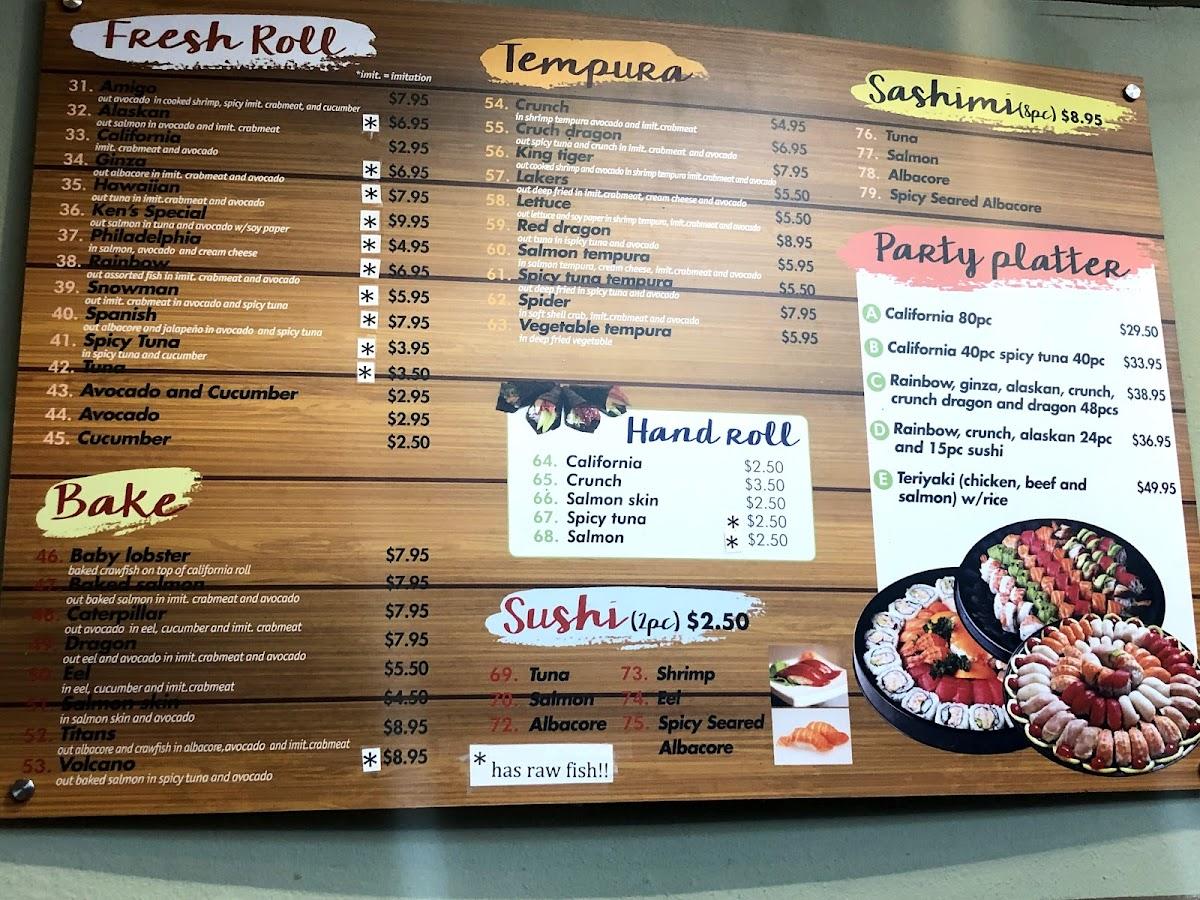 Fresh Roll
*imit. = imitation
31. Amigo $7.95
out avocado in cooked shrimp, spicy imit. crabmeat, and cucumber
32. Alaskan * $6.95
out salmon in avocado and imit. crabmeat
33. California $2.95
imit. crabmeat and avocado
34. Ginza * $6.95
out albacore in imit. crabmeat and avocado
35. Hawaiian * $7.95
out tuna in imit.crabmeat and avocado
36. Ken's Special * $9.95
out salmon in tuna and avocado w/soy paper
37. Philadelphia * $4.95
in salmon, avocado and cream cheese
38. Rainbow * $6.95
out assorted fish in imit. crabmeat and avocado
39. Snowman * $5.95
out imit. crabmeat in avocado and spicy tuna
40. Spanish * $7.95
out albacore and jalapeño in avocado and spicy tuna
41. Spicy Tuna * $3.95
in spicy tuna and cucumber
42. Tuna * $3.50
43. Avocado and Cucumber $2.95
44. Avocado $2.95
45. Cucumber $2.50
Bake
46. Baby lobster $7.95
baked crawfish on top of california roll
47. Baked salmon $7.95
out baked salmon in imit. crabmeat and avocado
48. Caterpillar $7.95
out avocado in eel, cucumber and imit. crabmeat
49. Dragon $7.95
out eel and avocado in imit.crabmeat and avocado
50. Eel $5.50
in eel, cucumber and imit.crabmeat
51. Salmon skin $4.50
in salmon skin and avocado
52. Titans $8.95
out albacore and crawfish in albacore,avocado and imit.crabmeat
53. Volcano * $8.95
out baked salmon in spicy tuna and avocado
Tempura
54. Crunch $4.95
in shrimp tempura avocado and imit.crabmeat
55. Cruch dragon $6.95
out spicy tuna and crunch in imit.crabmeat and avocado
56. King tiger $7.95
out cooked shrimp and avocado in shrimp tempura imit.crabmeat and avocado
57. Lakers $5.50
out deep fried in imit.crabmeat, cream cheese and avocado
58. Lettuce $5.50
out lettuce and soy paper in shrimp tempura, imit.crabmeat and avocado
59. Red dragon $8.95
out tuna in ispicy tuna and avocado
60. Salmon tempura $5.95
in salmon tempura, cream cheese, imit.crabmeat and avocado
61. Spicy tuna tempura $5.50
out deep fried in spicy tuna and avocado
62. Spider $7.95
in soft shell crab, imit.crabmeat and avocado
63. Vegetable tempura $5.95
in deep fried vegetable
Hand Roll
64. California $2.50
65. Crunch $3.50
66. Salmon skin $2.50
67. Spicy tuna * $2.50
68. Salmon * $2.50
Sushi (2pc) $2.50
69. Tuna 73. Shrimp
70. Salmon 74. Eel
72. Albacore 75. Spicy Seared
Albacore
* has raw fish!!
Sashimi (8pc) $8.95
76. Tuna
77. Salmon
78. Albacore
79. Spicy Seared Albacore
Party platter
A California 80pc $29.50
B California 40pc spicy tuna 40pc $33.95
C Rainbow, ginza, alaskan, crunch, $38.95
crunch dragon and dragon 48pcs
D Rainbow, crunch, alaskan 24pc $36.95
and 15pc sushi
E Teriyaki (chicken, beef and $49.95
salmon) w/rice